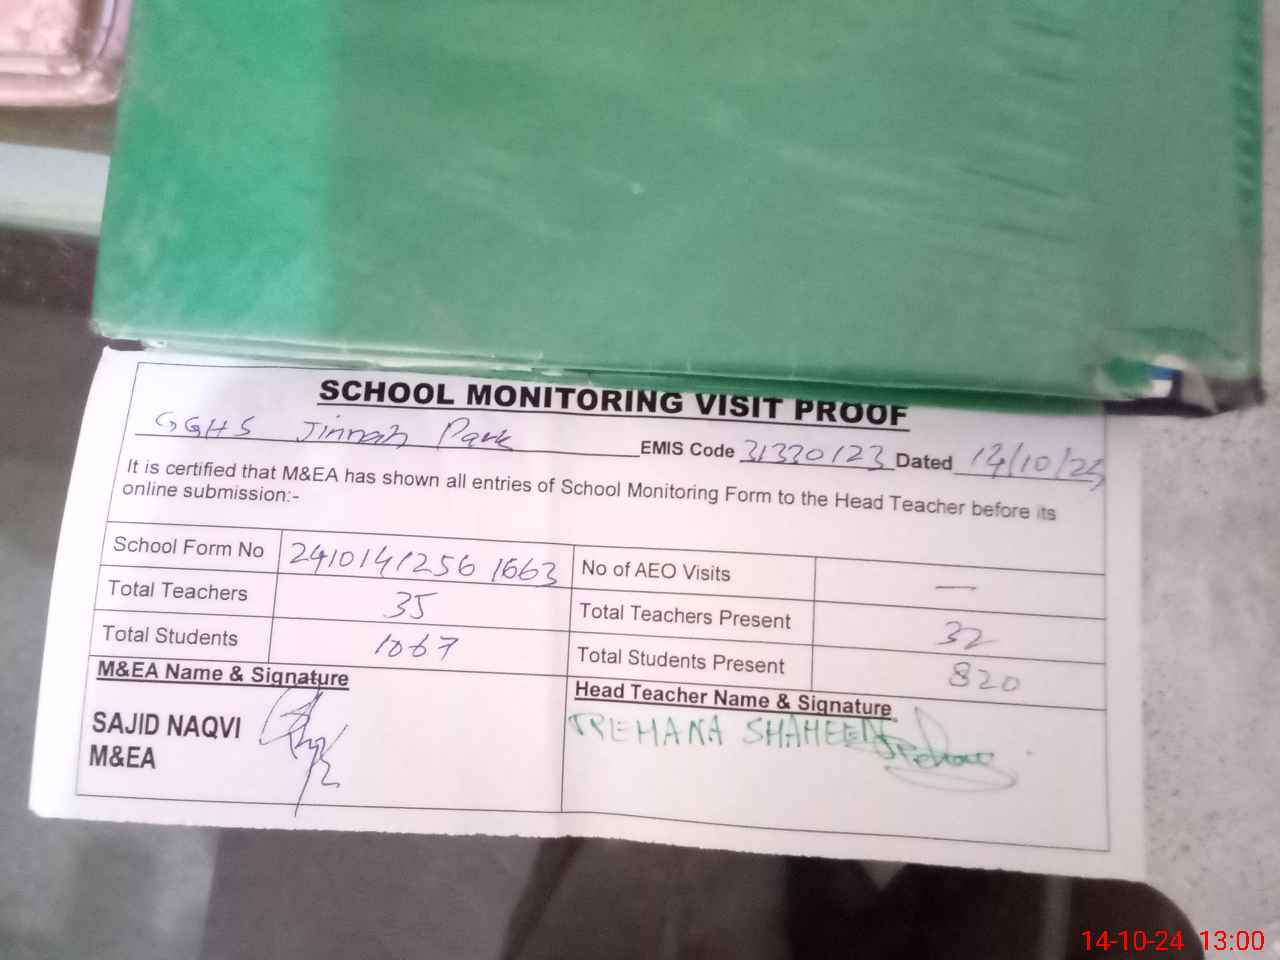 SCHOOL MONITORING VISIT PROOF
GGHS Jinnah Park EMIS Code 31330123 Dated 14/10/24
It is certified that M&EA has shown all entries of School Monitoring Form to the Head Teacher before its
online submission:-
School Form No 2410141256 1663 No of AEO Visits —
Total Teachers 35 Total Teachers Present 32
Total Students 1067 Total Students Present 820
M&EA Name & Signature Head Teacher Name & Signature
SAJID NAQVI SHAHEEN
M&EA
14-10-24 13:00